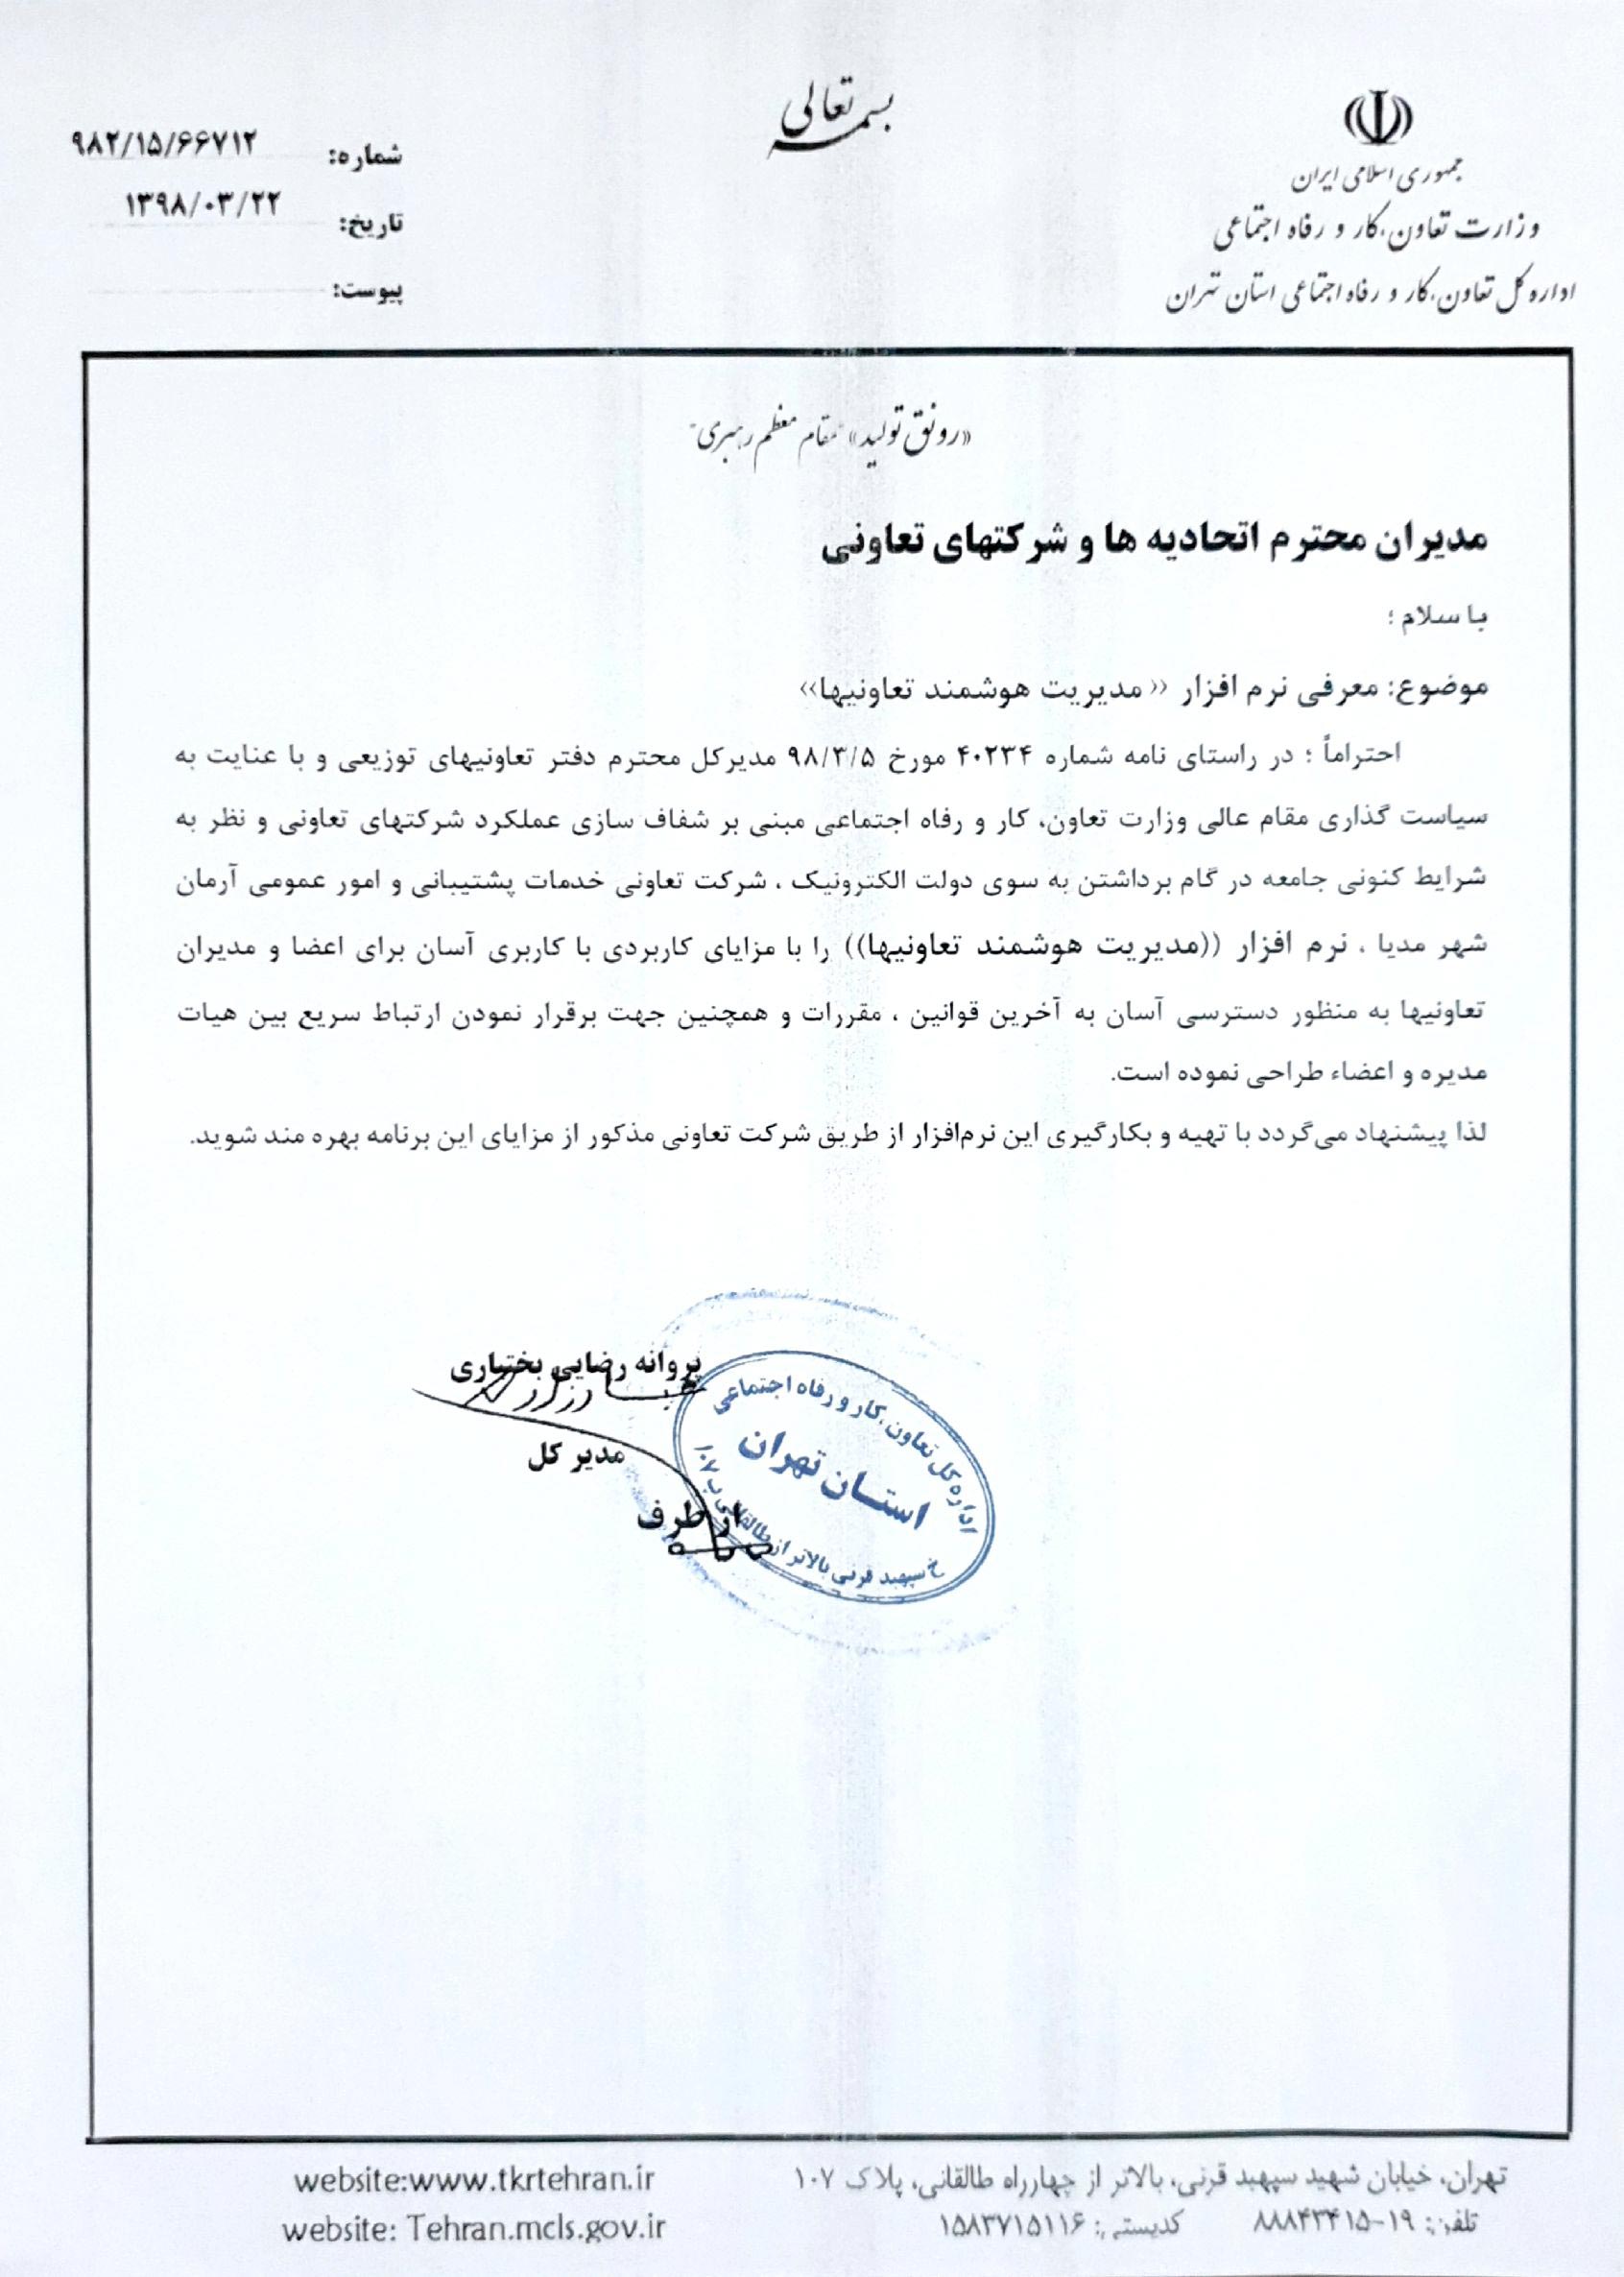 بسمه تعالی
جمهوری اسلامی ایران
وزارت تعاون، کار و رفاه اجتماعی
اداره کل تعاون، کار و رفاه اجتماعی استان تهران
شماره: ۹۸۲/۱۵/۶۶۷۱۲
تاریخ: ۱۳۹۸/۰۳/۲۲
پیوست:
«رونق تولید» "مقام معظم رهبری"
مدیران محترم اتحادیه ها و شرکتهای تعاونی
با سلام ؛
موضوع: معرفی نرم افزار « مدیریت هوشمند تعاونیها»
احتراماً ؛ در راستای نامه شماره ۴۰۲۳۴ مورخ ۹۸/۳/۵ مدیرکل محترم دفتر تعاونیهای توزیعی و با عنایت به
سیاست گذاری مقام عالی وزارت تعاون، کار و رفاه اجتماعی مبنی بر شفاف سازی عملکرد شرکتهای تعاونی و نظر به
شرایط کنونی جامعه در گام برداشتن به سوی دولت الکترونیک ، شرکت تعاونی خدمات پشتیبانی و امور عمومی آرمان
شهر مدیا ، نرم افزار ((مدیریت هوشمند تعاونیها)) را با مزایای کاربردی با کاربری آسان برای اعضا و مدیران
تعاونیها به منظور دسترسی آسان به آخرین قوانین ، مقررات و همچنین جهت برقرار نمودن ارتباط سریع بین هیات
مدیره و اعضاء طراحی نموده است.
لذا پیشنهاد می‌گردد با تهیه و بکارگیری این نرم‌افزار از طریق شرکت تعاونی مذکور از مزایای این برنامه بهره مند شوید.
پروانه رضایی بختیاری
مدیر کل
از طرف
اداره کل تعاون، کار و رفاه اجتماعی
استان تهران
خ سپهبد قرنی بالاتر از طالقانی پ ۱۰۷
تهران، خیابان شهید سپهبد قرنی، بالاتر از چهارراه طالقانی، پلاک ۱۰۷
تلفن: ۱۹-۸۸۸۴۳۴۱۵ کدپستی: ۱۵۸۳۷۱۵۱۱۶
website:www.tkrtehran.ir
website: Tehran.mcls.gov.ir